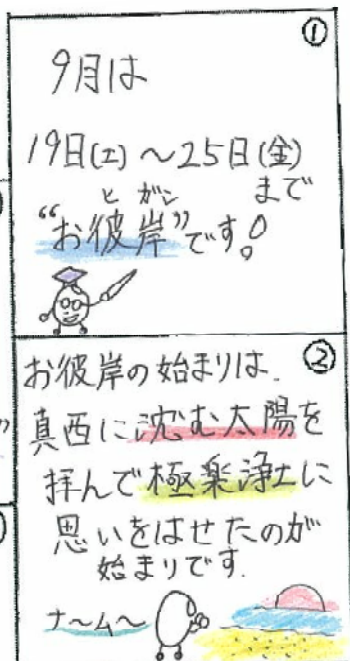 ①
9月は
19日(土)～25日(金)
まで
ヒガン
“お彼岸”です!
②
お彼岸の始まりは、
真西に沈む太陽を
拝んで極楽浄土に
思いをはせたのが
始まりです.
ナ～ム～